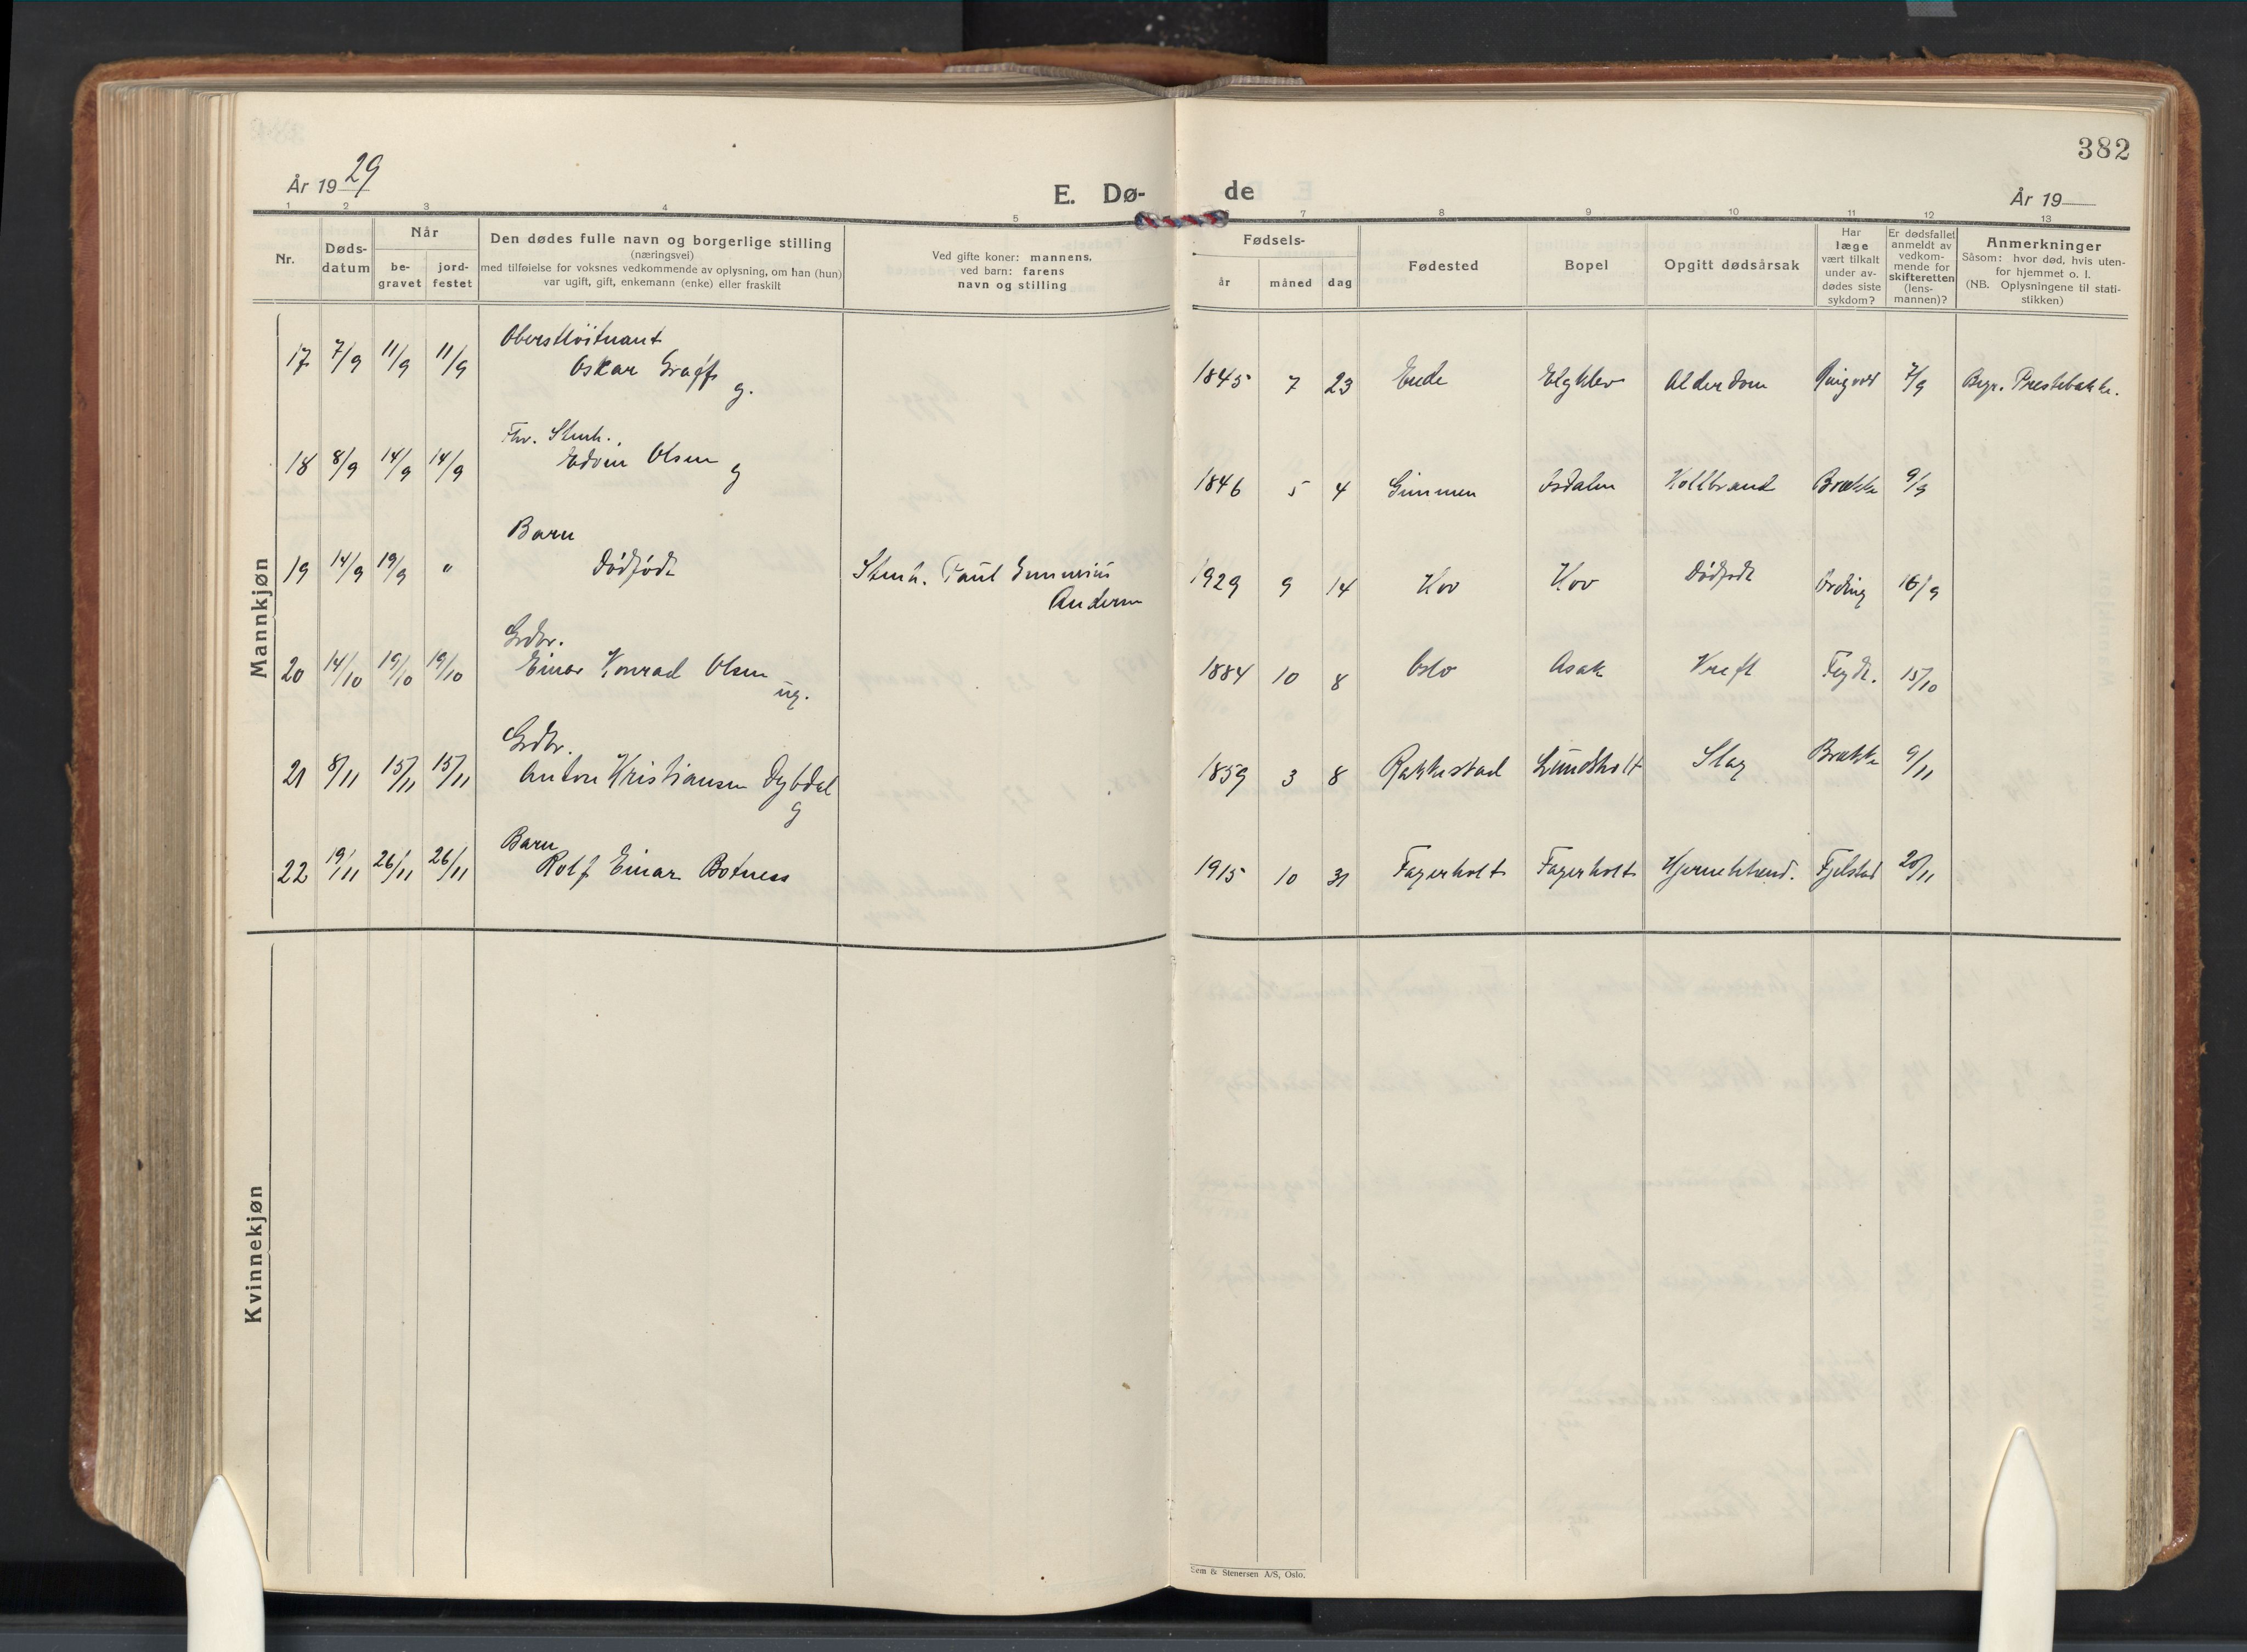 382
År 1929
E. Dø-
de
År 19
1 2 3 4 5 6 7 8 9 10 11 12 13
Nr.
Døds-
datum
Når
be-
gravet
jord-
festet
Den dødes fulle navn og borgerlige stilling
(næringsvei)
med tilføielse for voksnes vedkommende av oplysning, om han (hun)
var ugift, gift, enkemann (enke) eller fraskilt
Ved gifte koner: mannens,
ved barn: farens
navn og stilling
Fødsels-
år måned dag
Fødested
Bopel
Opgitt dødsårsak
Har
læge
vært tilkalt
under av-
dødes siste
sykdom?
Er dødsfallet
anmeldt av
vedkom-
mende for
skifteretten
(lens-
mannen)?
Anmerkninger
Såsom: hvor død, hvis uten-
for hjemmet o. l.
(NB. Oplysningene til stati-
stikken)
Mannkjøn
Oberstløitnant
17 7/9 11/9 11/9 Oskar Gräff g. 1845 7 23 Elgklev Alderdom 7/9 Begr. Prestebakke.
Fhv. Stenh.
18 8/9 14/9 14/9 Edvin Olsen g 1846 5 4 Isdalen Koldbrand Brække 9/9
Barn
19 14/9 19/9 " Dødfødt Stenh. Paul Gunnerius 1929 9 14 Kov Kov Dødfødt Ording 16/9
Andersen
Grdbr.
20 14/10 19/10 19/10 Einar Konrad Olsen ug. 1884 10 8 Oslo Asak Kreft 15/10
Grdbr.
21 8/11 15/11 15/11 Anton Kristiansen Dybdal g 1859 3 8 Rakkestad Lundsholt Slag Brække 9/11
Barn
22 19/11 26/11 26/11 Rolf Einar Botness 1915 10 31 Fagerholt Fagerholt Hjernebetend. Fjelstad 20/11
Kvinnekjøn
Sem & Stenersen A/S, Oslo.